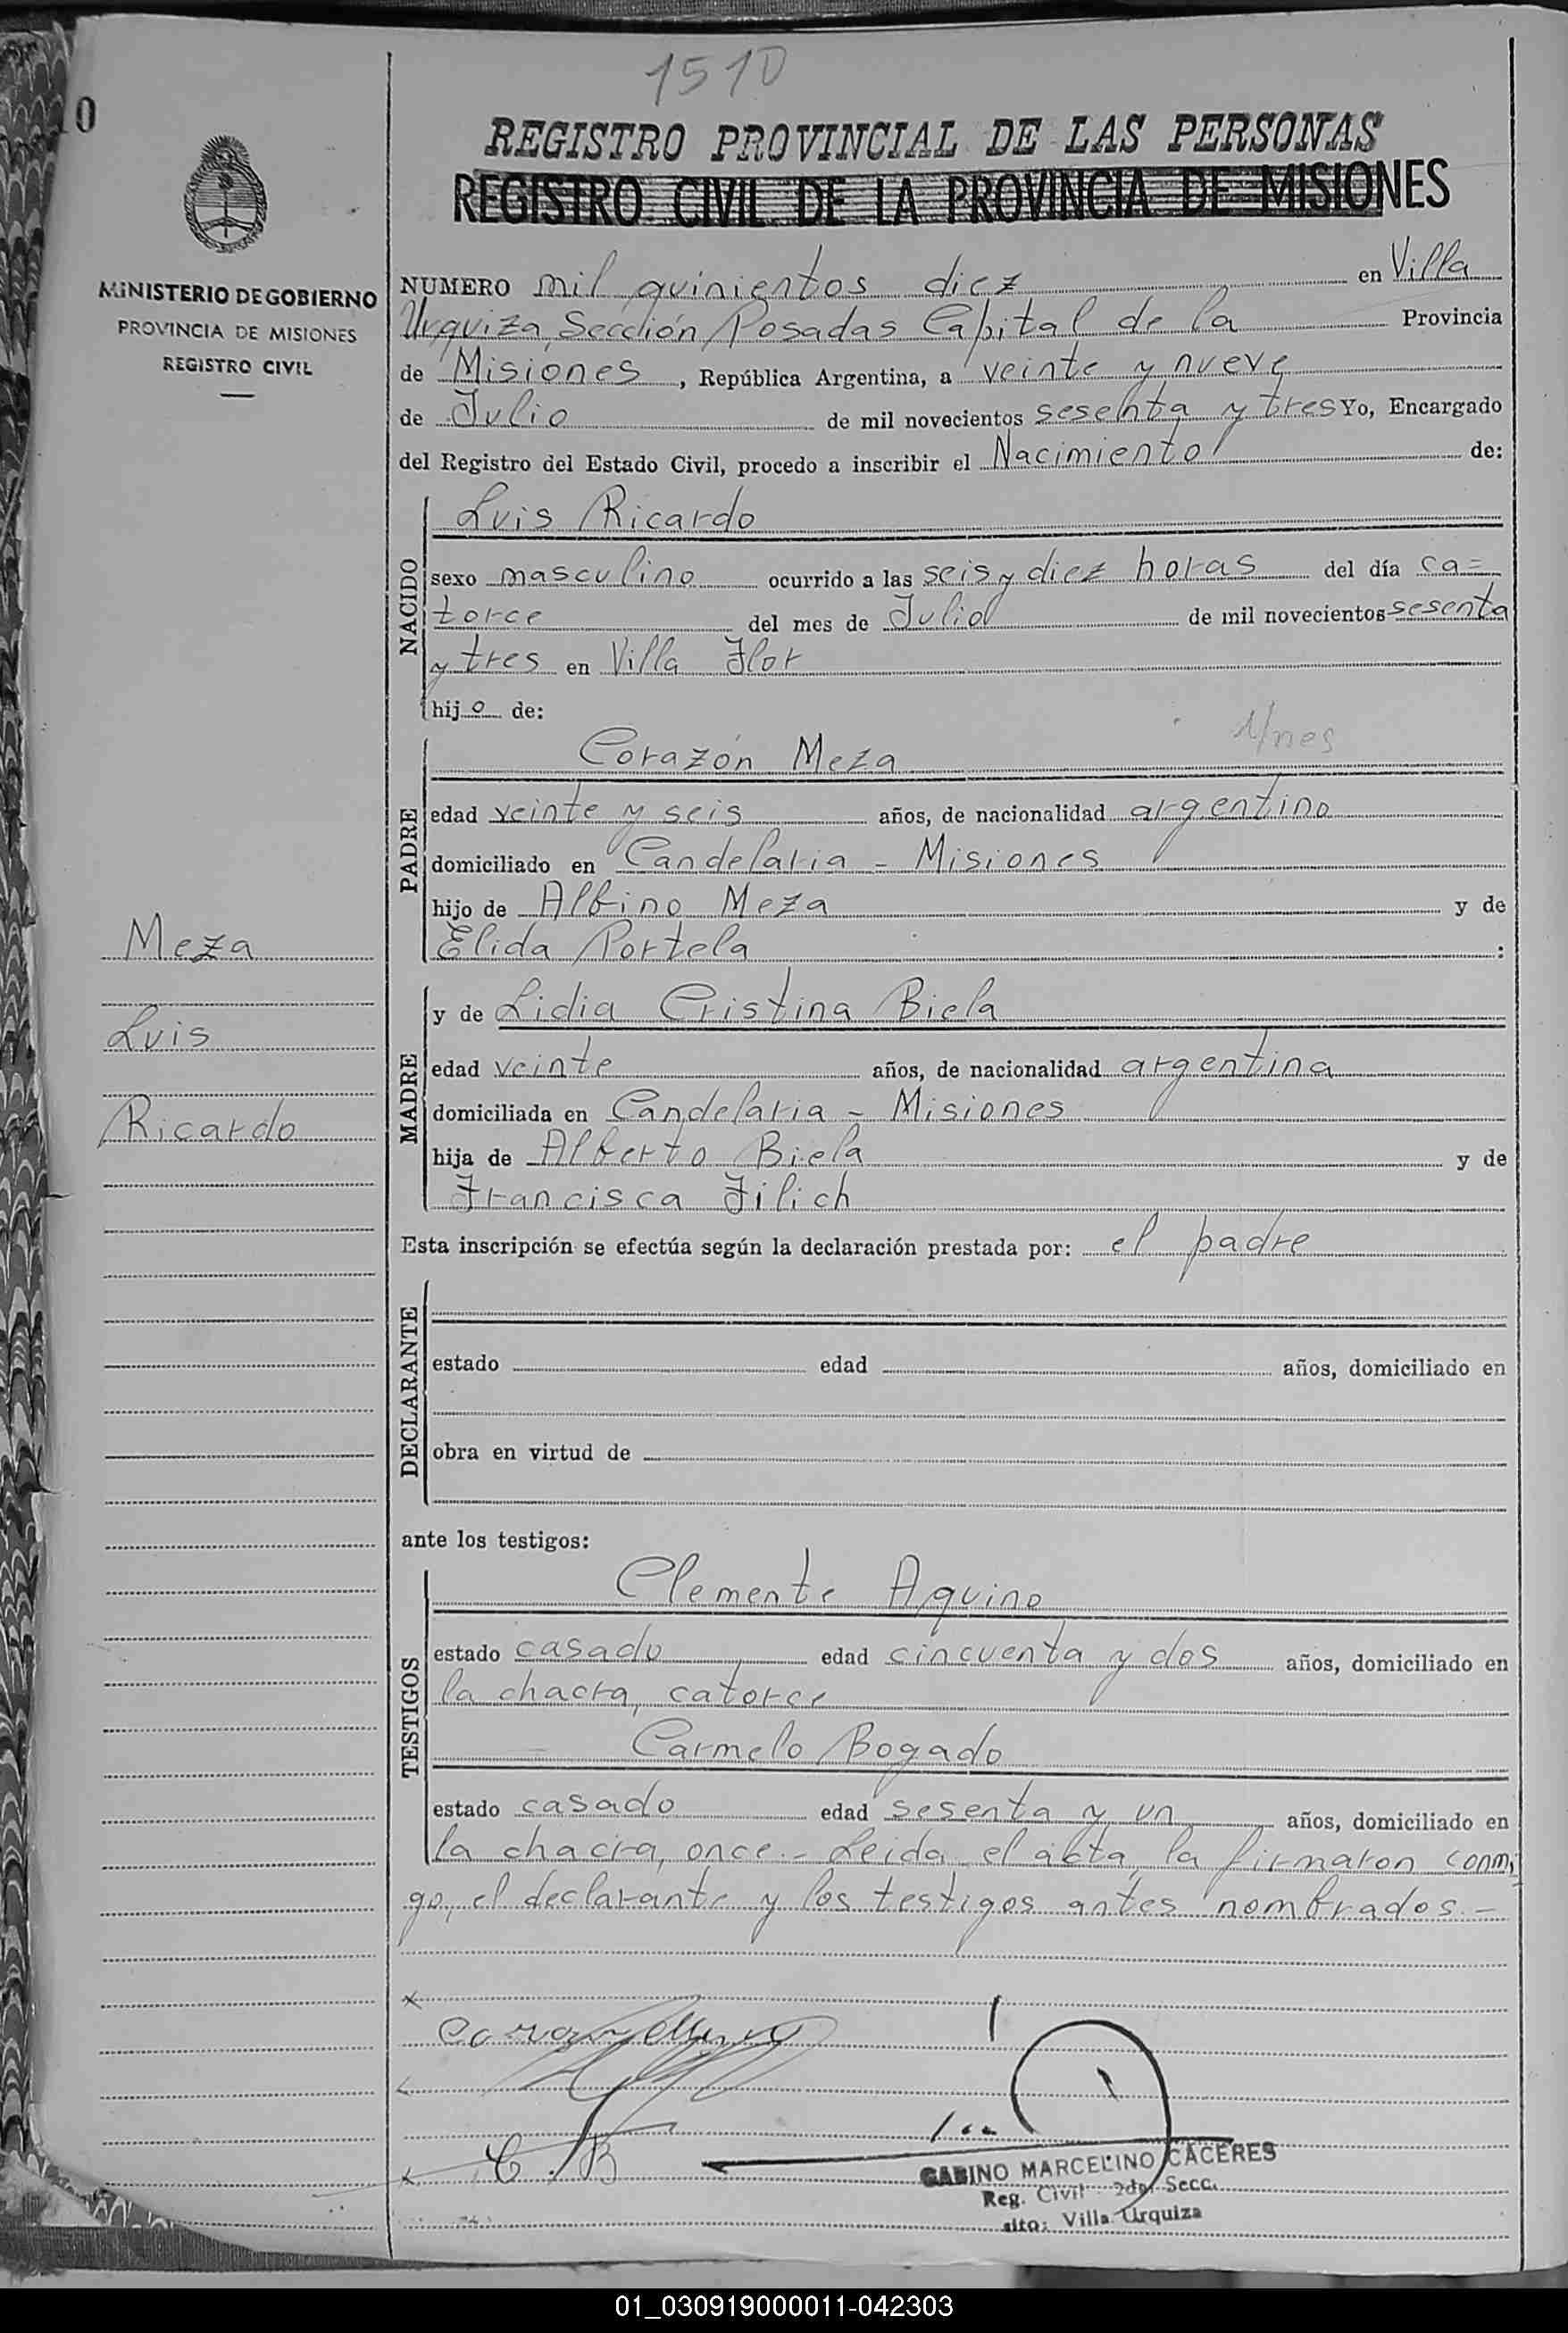 1510
0
REGISTRO PROVINCIAL DE LAS PERSONAS
REGISTRO CIVIL DE LA PROVINCIA DE MISIONES
MINISTERIO DE GOBIERNO
PROVINCIA DE MISIONES
REGISTRO CIVIL
NUMERO mil quinientos diez en Villa
Urquiza, Sección Posadas Capital de la Provincia
de Misiones, República Argentina, a veinte y nueve
de Julio de mil novecientos sesenta y tres Yo, Encargado
del Registro del Estado Civil, procedo a inscribir el Nacimiento de:
NACIDO
Luis Ricardo
sexo masculino ocurrido a las seis y diez horas del día ca=
torce del mes de Julio de mil novecientos sesenta
y tres en Villa Flor
hijo de:
PADRE
Corazón Meza
edad veinte y seis años, de nacionalidad argentino
domiciliado en Candelaria - Misiones
hijo de Albino Meza y de
Elida Portela :
Meza
Luis
Ricardo
MADRE
y de Lidia Cristina Biela
edad veinte años, de nacionalidad argentina
domiciliada en Candelaria - Misiones
hija de Alberto Biela y de
Francisca Filich
Esta inscripción se efectúa según la declaración prestada por: el padre
DECLARANTE
estado edad años, domiciliado en
obra en virtud de
ante los testigos:
TESTIGOS
Clemente Aquino
estado casado edad cincuenta y dos años, domiciliado en
la chacra, catorce
Carmelo Bogado
estado casado edad sesenta y un años, domiciliado en
la chacra, once.- Leida el acta, la firmaron conmi
go, el declarante y los testigos antes nombrados.-
C B
GABINO MARCELINO CACERES
Reg. Civil 2da. Secc.
sito: Villa Urquiza
01_030919000011-042303